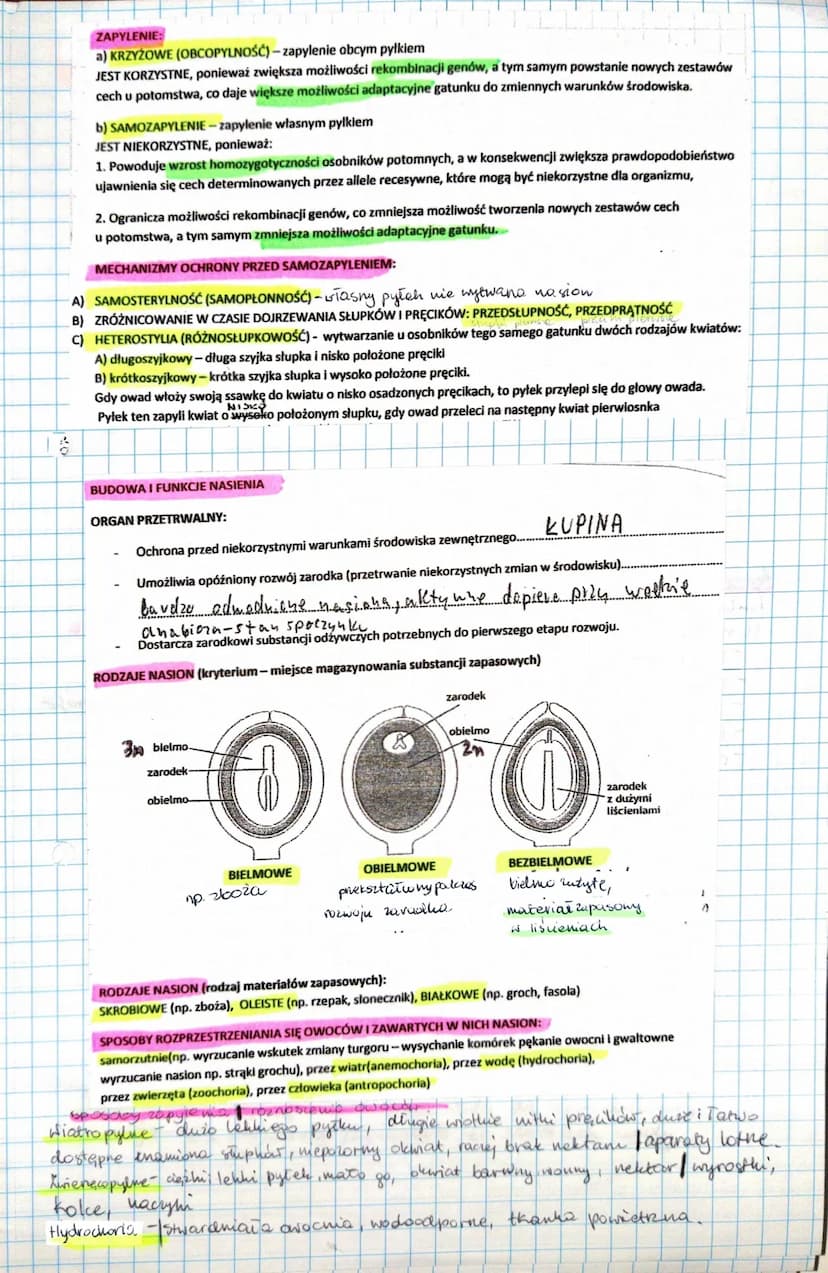 ZAPYLENIE:
a) KRZYŻOWE (OBCOPYLNOŚĆ) – zapylenie obcym pyłkiem
JEST KORZYSTNE, ponieważ zwiększa możliwości rekombinacji genów, a tym samym powstanie nowych zestawów
cech u potomstwa, co daje większe możliwości adaptacyjne gatunku do zmiennych warunków środowiska.
b) SAMOZAPYLENIE – zapylenie własnym pyłkiem
JEST NIEKORZYSTNE, ponieważ:
1. Powoduje wzrost homozygotyczności osobników potomnych, a w konsekwencji zwiększa prawdopodobieństwo
ujawnienia się cech determinowanych przez allele recesywne, które mogą być niekorzystne dla organizmu,
2. Ogranicza możliwości rekombinacji genów, co zmniejsza możliwość tworzenia nowych zestawów cech
u potomstwa, a tym samym zmniejsza możliwości adaptacyjne gatunku.
MECHANIZMY OCHRONY PRZED SAMOZAPYLENIEM:
A) SAMOSTERYLNOŚĆ (SAMOPŁONNOŚĆ) – własny pyłek nie wytwarza nasion
B) ZRÓŻNICOWANIE W CZASIE DOJRZEWANIA SŁUPKÓW I PRĘCIKÓW: PRZEDSŁUPNOŚĆ, PRZEDPRĄTNOŚĆ
C) HETEROSTYLIA (RÓŻNOSŁUPKOWOŚĆ) - wytwarzanie u osobników tego samego gatunku dwóch rodzajów kwiatów:
A) długoszyjkowy – długa szyjka słupka i nisko położone pręciki
B) krótkoszyjkowy – krótka szyjka słupka i wysoko położone pręciki.
Gdy owad włoży swoją ssawkę do kwiatu o nisko osadzonych pręcikach, to pyłek przylepi się do głowy owada.
NISKO
Pyłek ten zapyli kwiat o wysoko położonym słupku, gdy owad przeleci na następny kwiat pierwiosnka
BUDOWA I FUNKCJE NASIENIA
ORGAN PRZETRWALNY:
- Ochrona przed niekorzystnymi warunkami środowiska zewnętrznego... ŁUPINA
- Umożliwia opóźniony rozwój zarodka (przetrwanie niekorzystnych zmian w środowisku)...
bardzo odwodnione nasiona, aktywne dopiero przy wodzie
anabioza – stan spoczynku
- Dostarcza zarodkowi substancji odżywczych potrzebnych do pierwszego etapu rozwoju.
RODZAJE NASION (kryterium – miejsce magazynowania substancji zapasowych)
zarodek
3n bielmo
obielmo
2n
zarodek
obielmo
zarodek
z dużymi
liścieniami
BIELMOWE
OBIELMOWE
BEZBIELMOWE
np. zboża
przekształcony podczas
rozwoju zarodka
bielmo zużyte,
materiał zapasowy
w liścieniach
RODZAJE NASION (rodzaj materiałów zapasowych):
SKROBIOWE (np. zboża), OLEISTE (np. rzepak, słonecznik), BIAŁKOWE (np. groch, fasola)
SPOSOBY ROZPRZESTRZENIANIA SIĘ OWOCÓW I ZAWARTYCH W NICH NASION:
samorzutnie(np. wyrzucanie wskutek zmiany turgoru – wysychanie komórek pękanie owocni i gwałtowne
wyrzucanie nasion np. strąki grochu), przez wiatr(anemochoria), przez wodę (hydrochoria),
przez zwierzęta (zoochoria), przez człowieka (antropochoria)
sposoby zapylenia / roznoszenia owoców
Wiatropylne – dużo lekkiego pyłku, długie wiotkie nitki pręcików, duże i łatwo
dostępne znamiona słupków, niepozorny okwiat, raczej brak nektaru | aparaty lotne
Zwierzęcopylne – ciężki, lepki pyłek, mało go, okwiat barwny, wonny, nektar | wyrostki,
kolce, haczyki
Hydrochoria – | stwardniała owocnia, wodoodporne, tkanka powietrzna.